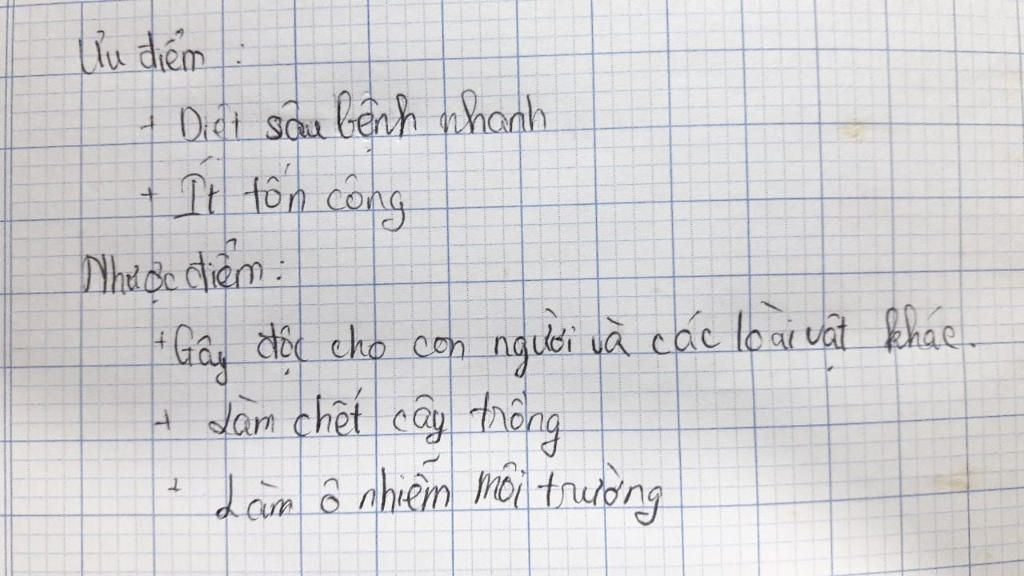 Ưu điểm :
+ Diệt sâu bệnh nhanh
+ Ít tốn công
Nhược điểm :
+ Gây độc cho con người và các loài vật khác.
+ Làm chết cây trồng
+ Làm ô nhiễm môi trường